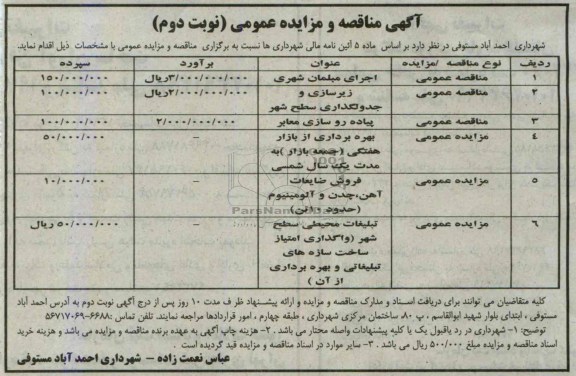 آگهی مناقصه و مزایده عمومی (نوبت دوم)
شهرداری احمد آباد مستوفی در نظر دارد بر اساس ماده ۵ آئین نامه مالی شهرداری ها نسبت به برگزاری مناقصه و مزایده عمومی با مشخصات ذیل اقدام نماید.
ردیف مناقصه /مزایده عنوان برآورد سپرده
۱ مناقصه عمومی اجرای مبلمان شهری ۳/۰۰۰/۰۰۰/۰۰۰ریال ۱۵۰/۰۰۰/۰۰۰
۲ مناقصه عمومی زیرسازی و ۲/۰۰۰/۰۰۰/۰۰۰ریال ۱۰۰/۰۰۰/۰۰۰
جدولگذاری سطح شهر
۳ مناقصه عمومی پیاده رو سازی معابر ۲/۰۰۰/۰۰۰/۰۰۰ ۱۰۰/۰۰۰/۰۰۰
۴ مزایده عمومی بهره برداری از بازار - ۵۰/۰۰۰/۰۰۰
هفتگی (جمعه بازار )به
مدت یک سال شمسی
۵ مزایده عمومی فروش ضایعات ۱۰/۰۰۰/۰۰۰
آهن،چدن و آلومینیوم
(حدود تن)
۶ مزایده عمومی تبلیغات محیطی سطح - ۵۰/۰۰۰/۰۰۰ ریال
شهر (واگذاری امتیاز
ساخت سازه های
تبلیغاتی و بهره برداری
از آن )
کلیه متقاضیان می توانند برای دریافت اسناد و مدارک مناقصه و مزایده و ارائه پیشنهاد ظرف مدت ۱۰ روز پس از درج آگهی نوبت دوم به آدرس احمد آباد
مستوفی ، ابتدای بلوار شهید ابوالقاسم ، پ ۸۰، ساختمان مرکزی شهرداری ، طبقه چهارم ، امور قراردادها مراجعه نمایند. تلفن تماس :۶۶۸۸-۵۶۷۱۷۰۶۹
توضیح: ۱- شهرداری در رد یاقبول یک یا کلیه پیشنهادات واصله مختار می باشد . ۲- هزینه چاپ آگهی به عهده برنده مناقصه و مزایده می باشد و هزینه خرید
اسناد مناقصه و مزایده مبلغ ۵۰۰/۰۰۰ ریال می باشد . ۳- سایر موارد در اسناد مناقصه و مزایده قید گردیده است .
عباس نعمت زاده – شهرداری احمد آباد مستوفی